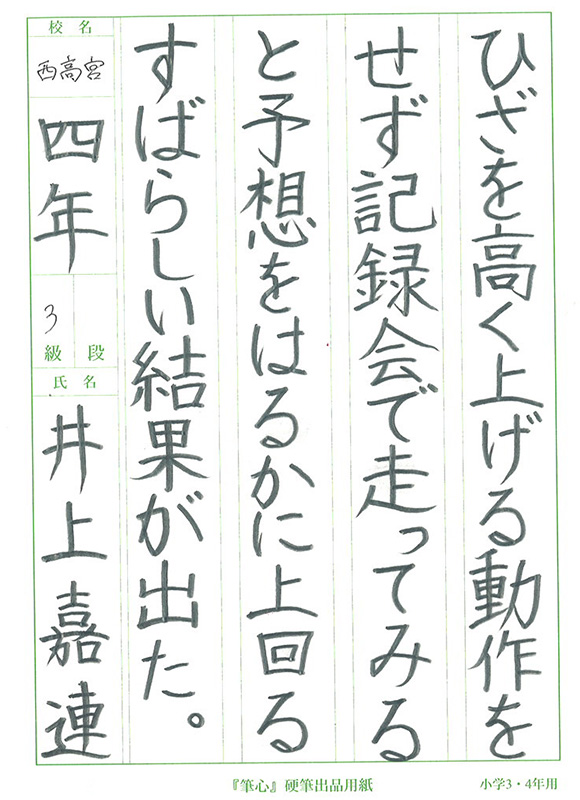 ひざを高く上げる動作を
せず記録会で走ってみる
と予想をはるかに上回る
すばらしい結果が出た。
校名
西高宮
四年
3
級段
氏名
井上嘉連
『筆心』硬筆出品用紙
小学3・4年用